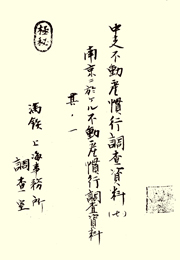 中支不動産慣行調査資料(七)
南京ニ於ケル不動産慣行調査資料
其ノ一
極秘
満鉄上海事務所
調査室